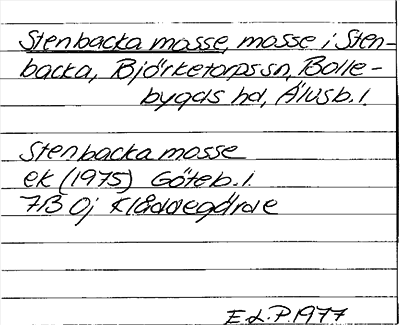 Stenbacka mosse, mosse i Sten-
backa, Björketorps sn, Bolle-
bygds hd, Älvsb. l.
Stenbacka mosse
ek (1975) Göteb. l.
7B 0j Kläddegärde
E.L.P. 1977